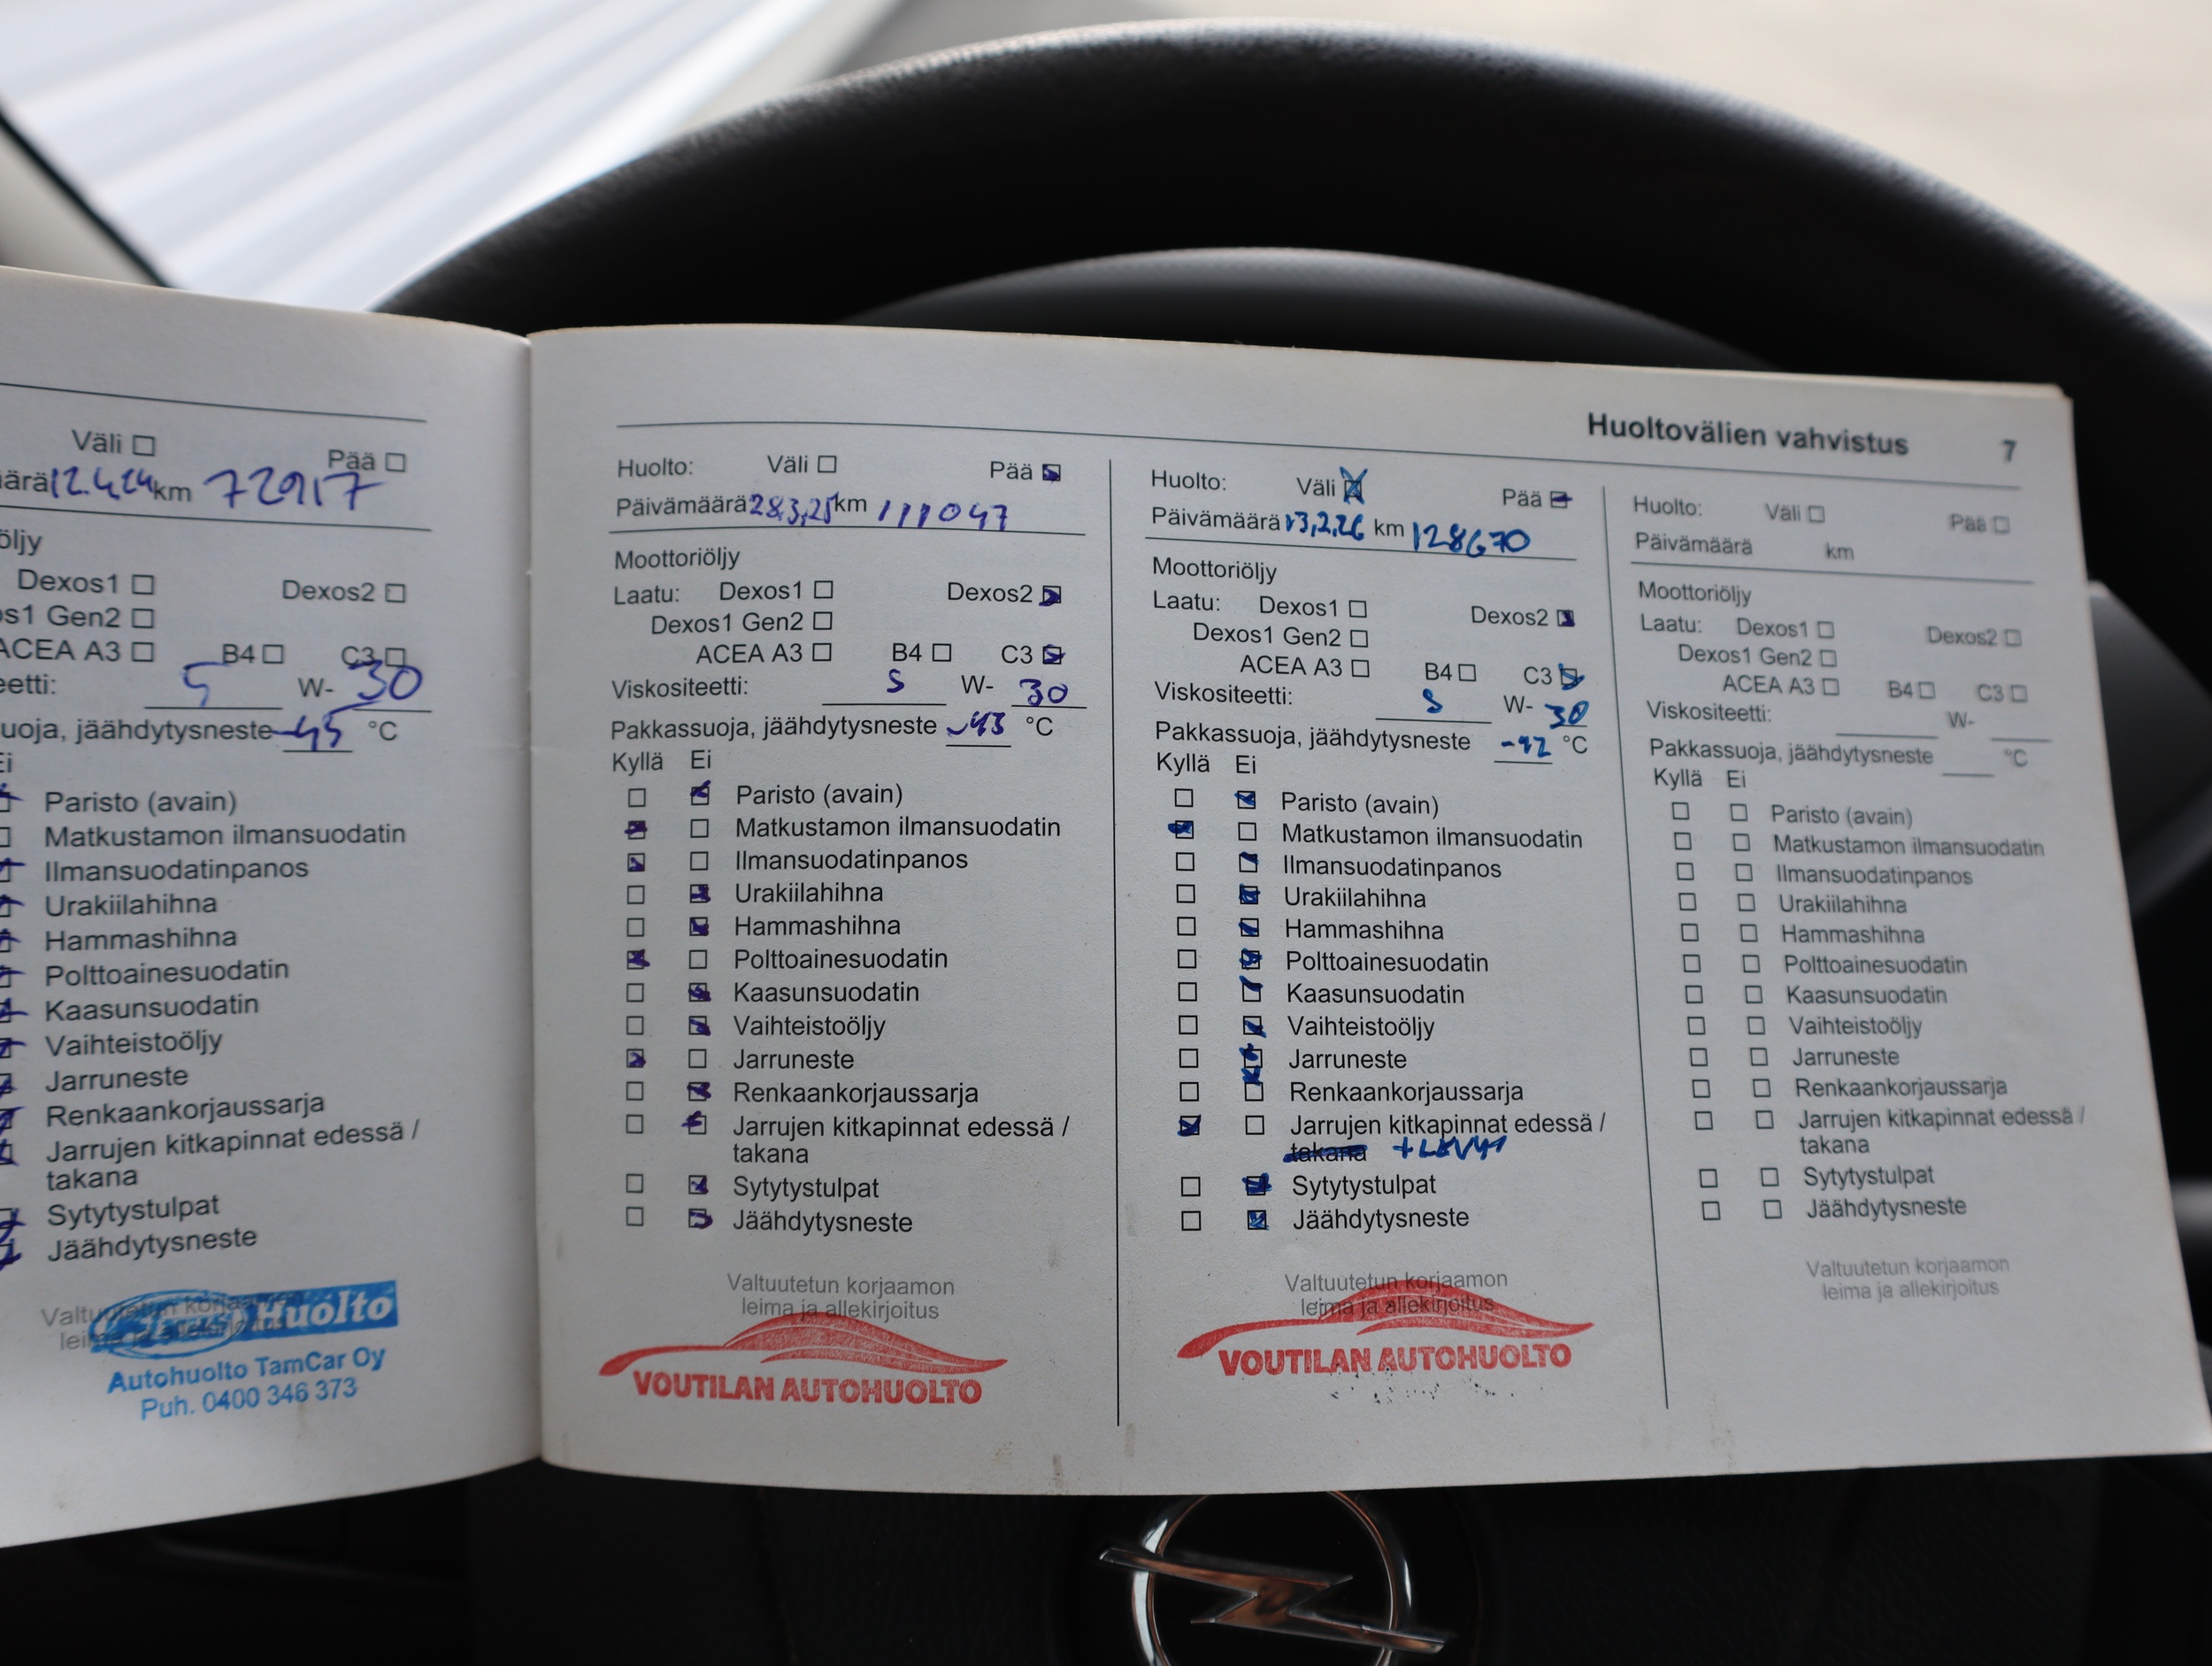 Väli ☐ Pää ☐
äärä 12.4.24 km 72917
öljy
Dexos1 ☐ Dexos2 ☐
os1 Gen2 ☐
ACEA A3 ☐ B4 ☐ C3 ☐
eetti: 5 W- 30
uoja, jäähdytysneste -45 °C
Ei
Paristo (avain)
Matkustamon ilmansuodatin
Ilmansuodatinpanos
Urakiilahihna
Hammashihna
Polttoainesuodatin
Kaasunsuodatin
Vaihteistoöljy
Jarruneste
Renkaankorjaussarja
Jarrujen kitkapinnat edessä /
takana
Sytytystulpat
Jäähdytysneste
Valtuutetun korjaamon
leima ja allekirjoitus
Huolto
Autohuolto TamCar Oy
Puh. 0400 346 373
Huoltovälien vahvistus 7
Huolto: Väli ☐ Pää ☒
Päivämäärä 28.3.25 km 111047
Moottoriöljy
Laatu: Dexos1 ☐ Dexos2 ☒
Dexos1 Gen2 ☐
ACEA A3 ☐ B4 ☐ C3 ☒
Viskositeetti: 5 W- 30
Pakkassuoja, jäähdytysneste -43 °C
Kyllä Ei
☐ ☒ Paristo (avain)
☒ ☐ Matkustamon ilmansuodatin
☒ ☐ Ilmansuodatinpanos
☐ ☒ Urakiilahihna
☐ ☒ Hammashihna
☒ ☐ Polttoainesuodatin
☐ ☒ Kaasunsuodatin
☐ ☒ Vaihteistoöljy
☒ ☐ Jarruneste
☐ ☒ Renkaankorjaussarja
☐ ☒ Jarrujen kitkapinnat edessä /
takana
☐ ☒ Sytytystulpat
☐ ☒ Jäähdytysneste
Valtuutetun korjaamon
leima ja allekirjoitus
VOUTILAN AUTOHUOLTO
Huolto: Väli ☒ Pää ☒
Päivämäärä 13.2.26 km 128670
Moottoriöljy
Laatu: Dexos1 ☐ Dexos2 ☒
Dexos1 Gen2 ☐
ACEA A3 ☐ B4 ☐ C3 ☒
Viskositeetti: 5 W- 30
Pakkassuoja, jäähdytysneste -42 °C
Kyllä Ei
☐ ☒ Paristo (avain)
☒ ☐ Matkustamon ilmansuodatin
☐ ☒ Ilmansuodatinpanos
☐ ☒ Urakiilahihna
☐ ☒ Hammashihna
☐ ☒ Polttoainesuodatin
☐ ☒ Kaasunsuodatin
☐ ☒ Vaihteistoöljy
☐ ☒ Jarruneste
☐ ☒ Renkaankorjaussarja
☒ ☐ Jarrujen kitkapinnat edessä /
takana + LEVYT
☐ ☒ Sytytystulpat
☐ ☒ Jäähdytysneste
Valtuutetun korjaamon
leima ja allekirjoitus
VOUTILAN AUTOHUOLTO
Huolto: Väli ☐ Pää ☐
Päivämäärä km
Moottoriöljy
Laatu: Dexos1 ☐ Dexos2 ☐
Dexos1 Gen2 ☐
ACEA A3 ☐ B4 ☐ C3 ☐
Viskositeetti: W-
Pakkassuoja, jäähdytysneste °C
Kyllä Ei
☐ ☐ Paristo (avain)
☐ ☐ Matkustamon ilmansuodatin
☐ ☐ Ilmansuodatinpanos
☐ ☐ Urakiilahihna
☐ ☐ Hammashihna
☐ ☐ Polttoainesuodatin
☐ ☐ Kaasunsuodatin
☐ ☐ Vaihteistoöljy
☐ ☐ Jarruneste
☐ ☐ Renkaankorjaussarja
☐ ☐ Jarrujen kitkapinnat edessä /
takana
☐ ☐ Sytytystulpat
☐ ☐ Jäähdytysneste
Valtuutetun korjaamon
leima ja allekirjoitus